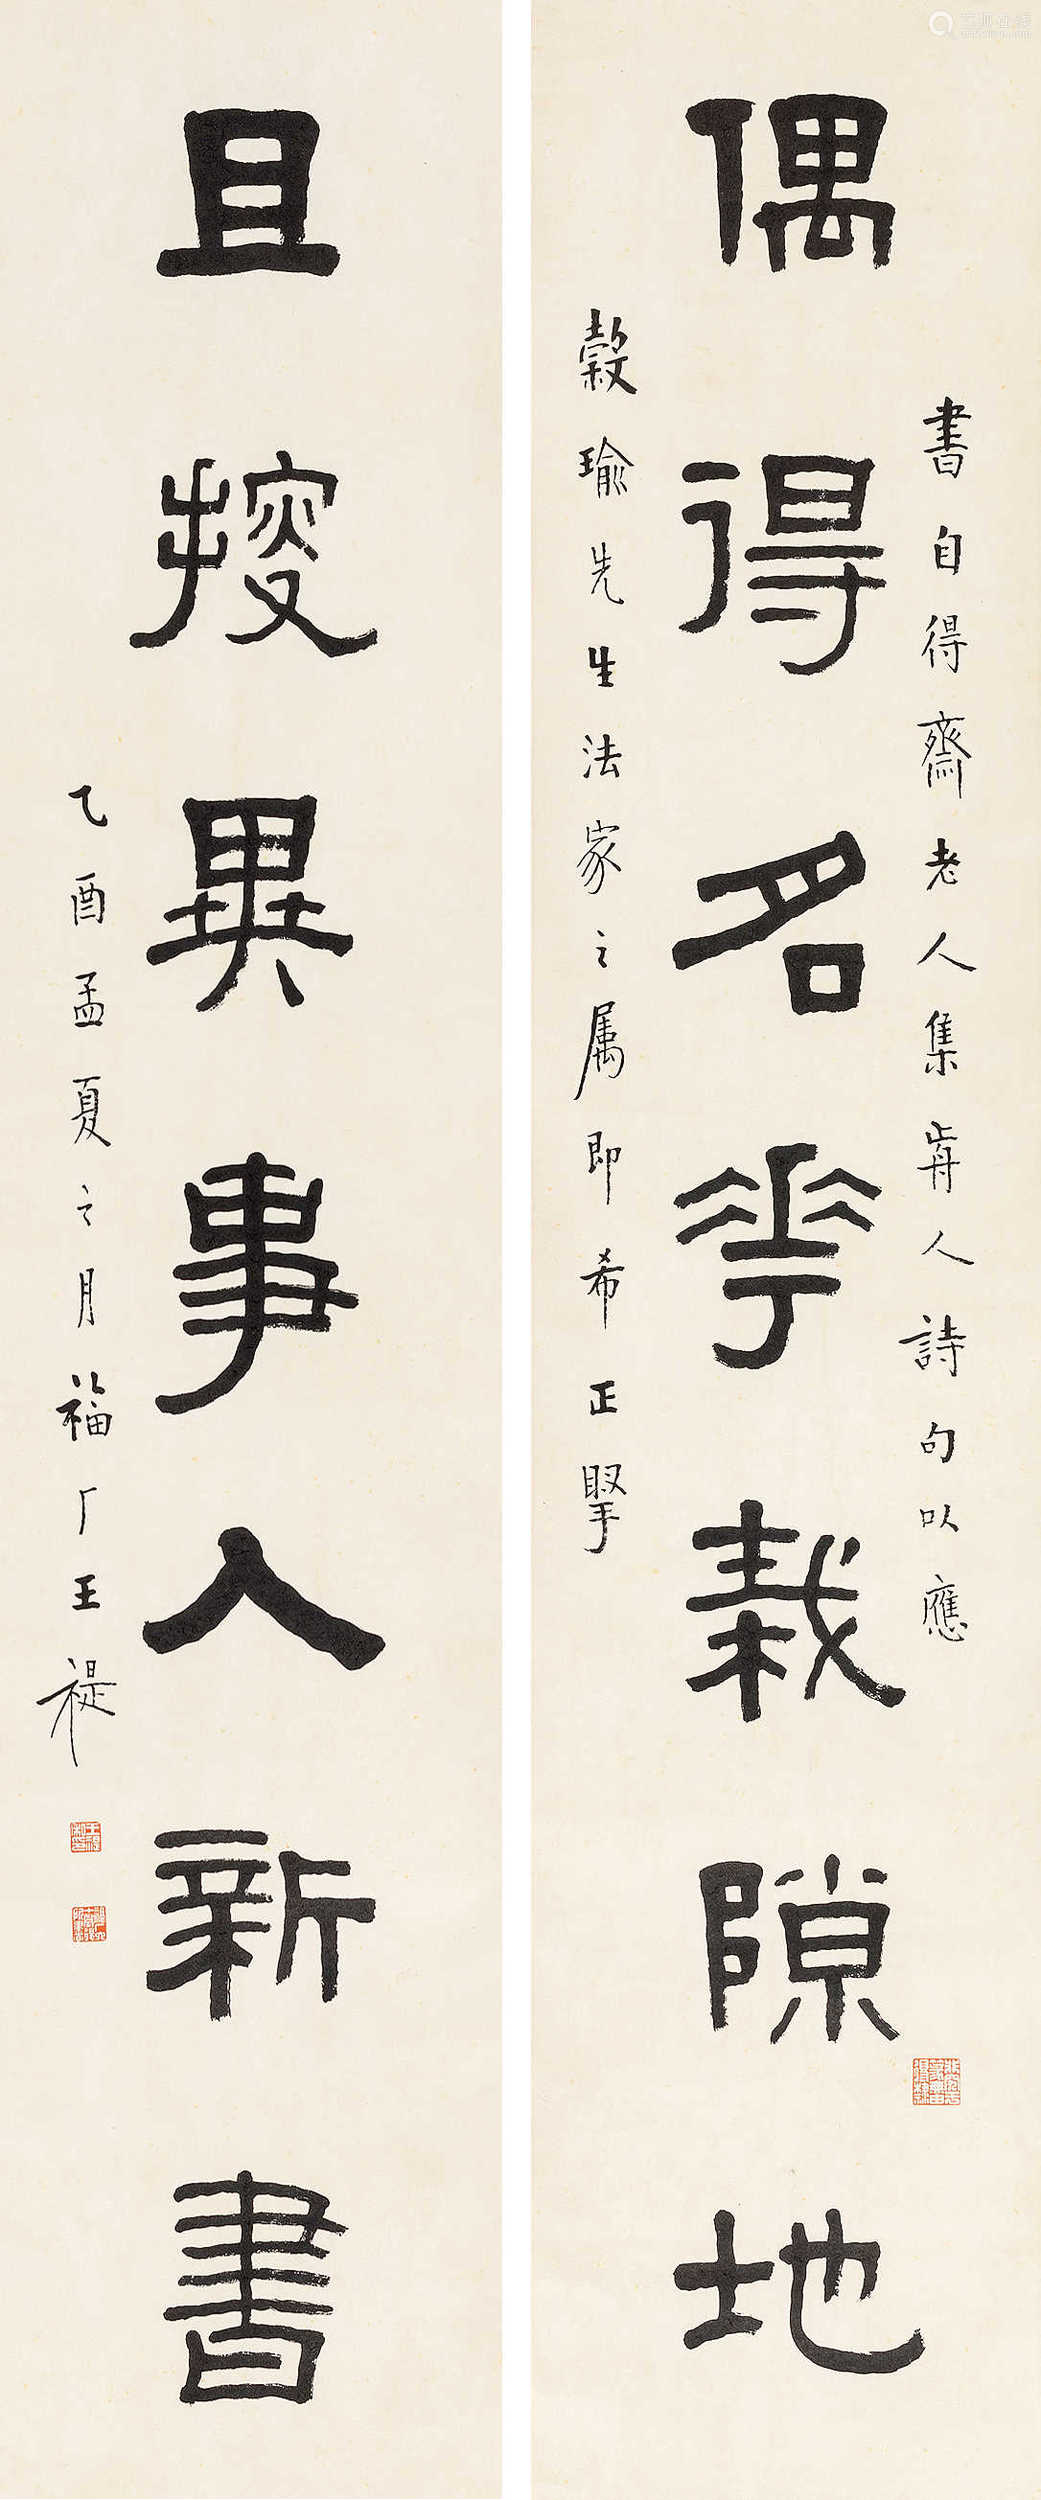 書自得齋老人集歬人詩句以應
偶得名花栽隙地
穀瑜先生法家之属即希正掔
且搜異事入新書
乙酉孟夏之月福厂王禔